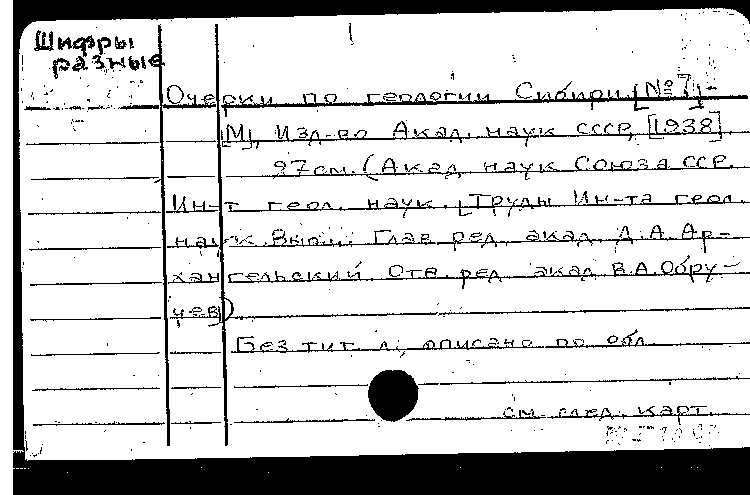 Шифры
разные
Очерки по геологии Сибири [№7]-
[М], Изд-во Акад. наук СССР, [1938]
27 см. (Акад. наук Союза ССР.
Ин-т геол. наук. [Труды Ин-та геол.
наук. Вып... Глав. ред. акад. Д.А. Ар-
хангельский. Отв. ред. акад. В.А. Обру-
чев]).
Без тит. л., описано по обл.
см. след. карт.